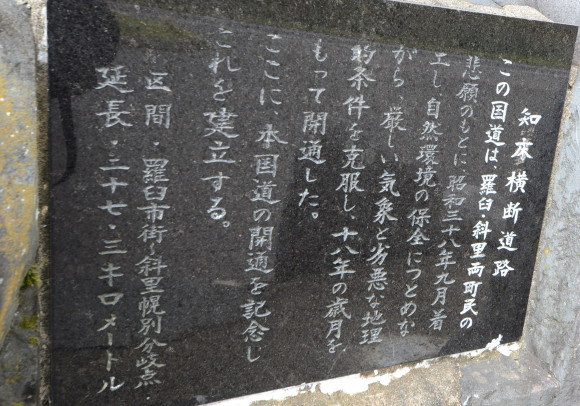 知床横断道路
この国道は、羅臼・斜里両町民の
悲願のもとに、昭和三十八年九月着
工し、自然環境の保全につとめな
がら 厳しい気象と劣悪な地理
的条件を克服し、十八年の歳月を
もって開通した。
ここに、本国道の開通を記念し
これを建立する。
区間・羅臼市街〜斜里幌別分岐点・
延長・二十七・三キロメートル